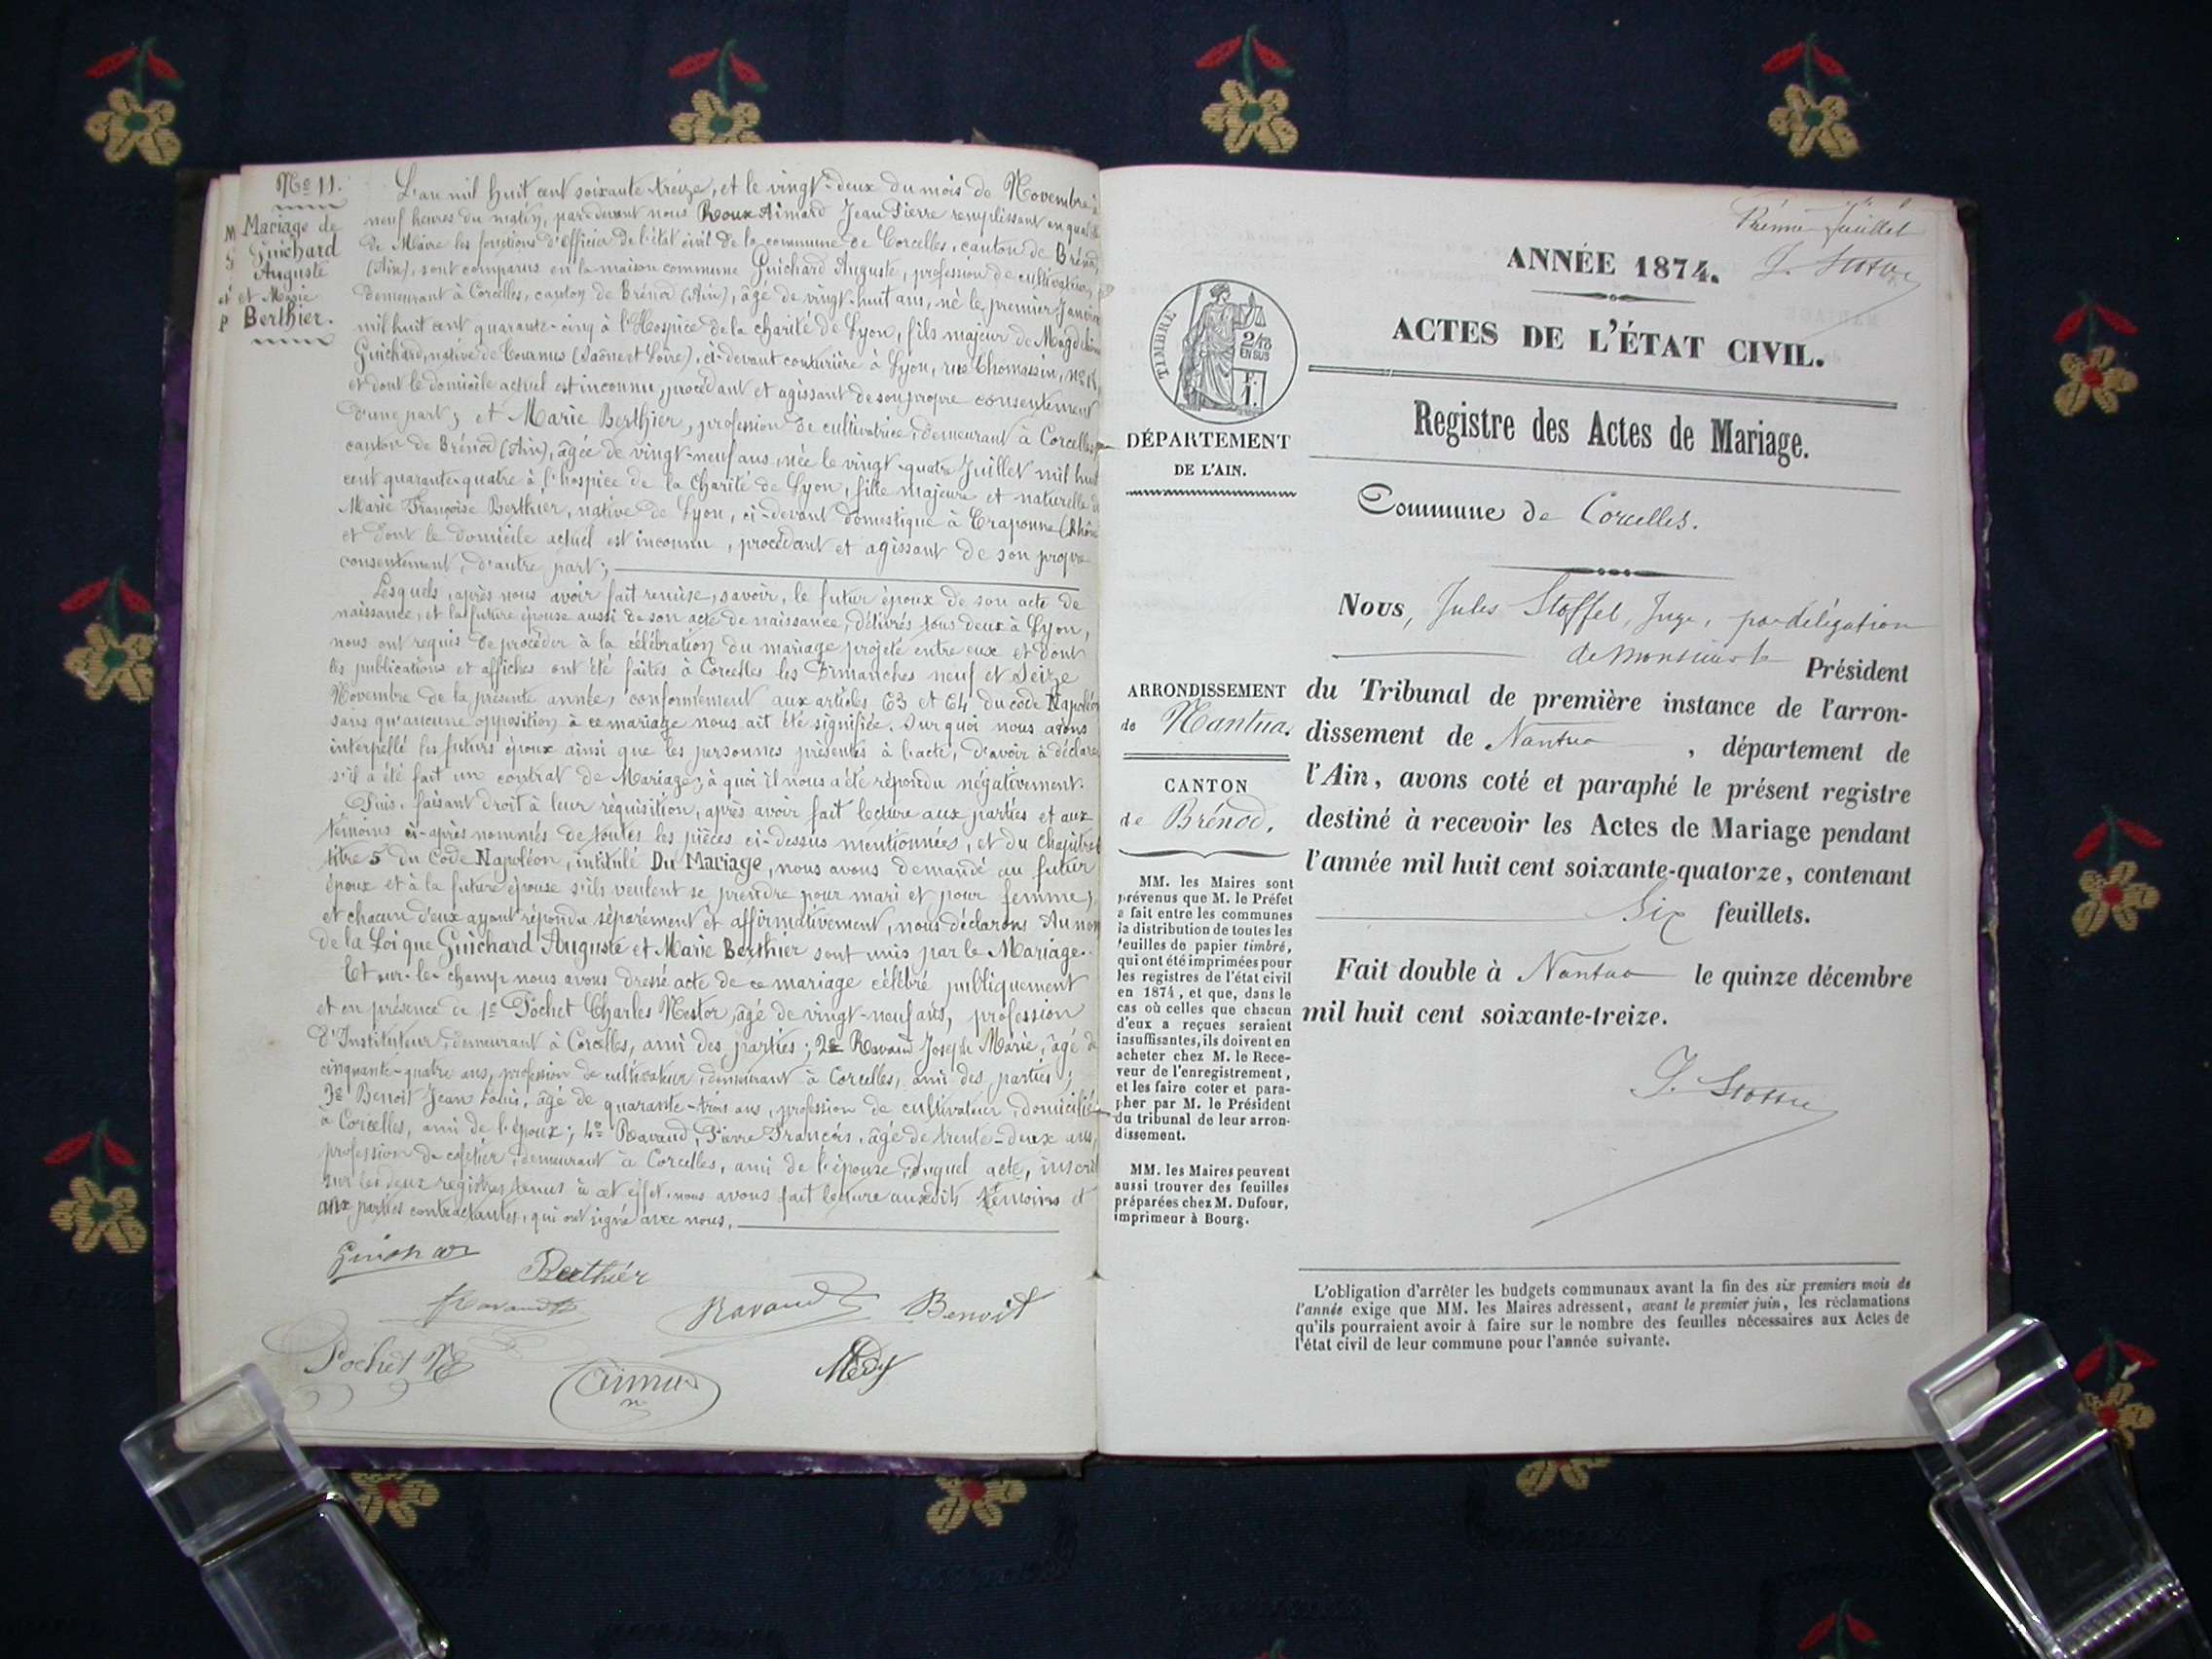 No 11.
Mariage de
Guichard
Auguste
et Marie
Berthier.
L'an mil huit cent soixante treize, et le vingt-deux du mois de Novembre à
neuf heures du matin, par-devant nous Roux Aimard Jean Pierre remplissant en qualité
de Maire les fonctions d'officier de l'état civil de la commune de Corcelles, canton de Brénod
(Ain), sont comparus en la maison commune Guichard Auguste, profession de cultivateur,
demeurant à Corcelles, canton de Brénod (Ain), âgé de vingt-huit ans, né le premier Janvier
mil huit cent quarante-cinq à l'Hospice de la charité de Lyon, fils majeur de Magdeleine
Guichard, native de Tournus (Saône et Loire), ci-devant couturière à Lyon, rue Thomassin, no
et dont le domicile actuel est inconnu, procédant et agissant de son propre consentement
d'une part; et Marie Berthier, profession de cultivatrice, demeurant à Corcelles
canton de Brénod (Ain), âgée de vingt-neuf ans, née le vingt-quatre Juillet mil huit
cent quarante-quatre à l'hospice de la Charité de Lyon, fille majeure et naturelle de
Marie Françoise Berthier, native de Lyon, ci-devant domestique à Craponne (Rhône
et dont le domicile actuel est inconnu, procédant et agissant de son propre
consentement, d'autre part;
Lesquels, après nous avoir fait remise, savoir, le futur époux de son acte de
naissance, et la future épouse aussi de son acte de naissance, délivrés tous deux à Lyon,
nous ont requis de procéder à la célébration du mariage projeté entre eux et dont
les publications et affiches ont été faites à Corcelles les Dimanches neuf et Seize
Novembre de la présente année, conformément aux articles 63 et 64 du code Napoléon
sans qu'aucune opposition à ce mariage nous ait été signifiée. Sur quoi nous avons
interpellé les futurs époux ainsi que les personnes présentes à l'acte, d'avoir à déclarer
s'il a été fait un contrat de Mariage, à quoi il nous a été répondu négativement.
Puis, faisant droit à leur réquisition, après avoir fait lecture aux parties et aux
témoins ci-après nommés de toutes les pièces ci-dessus mentionnées, et du chapitre
titre 5 du Code Napoléon, intitulé Du Mariage, nous avons demandé au futur
époux et à la future épouse s'ils veulent se prendre pour mari et pour femme,
et chacun d'eux ayant répondu séparément et affirmativement, nous déclarons Au nom
de la Loi que Guichard Auguste et Marie Berthier sont unis par le Mariage.
Et sur-le-champ nous avons dressé acte de ce mariage célébré publiquement
et en présence de 1º Pochet Charles Nestor, âgé de vingt-neuf ans, profession
d'Instituteur, demeurant à Corcelles, ami des parties; 2º Ravaud Joseph Marie, âgé de
cinquante-quatre ans, profession de cultivateur, demeurant à Corcelles, ami des parties;
3º Benoit Jean Louis, âgé de quarante-trois ans, profession de cultivateur, domicilié
à Corcelles, ami de l'époux; 4º Ravaud, Pierre François, âgé de trente-deux ans,
profession de cafetier, demeurant à Corcelles, ami de l'épouse; duquel acte, inscrit
sur les deux registres tenus à cet effet, nous avons fait lecture auxdits témoins et
aux parties contractantes, qui ont signé avec nous.
Guichar
Berthier
Ravaud
Ravaud
Benoit
Pochet
Premier feuillet
ANNÉE 1874.
ACTES DE L'ÉTAT CIVIL.
Registre des Actes de Mariage.
Commune de Corcelles.
TIMBRE
2/10
EN SUS
F.
1.
DÉPARTEMENT
DE L'AIN.
ARRONDISSEMENT
de Nantua.
CANTON
de Brénod.
MM. les Maires sont
prévenus que M. le Préfet
a fait entre les communes
la distribution de toutes les
feuilles de papier timbré,
qui ont été imprimées pour
les registres de l'état civil
en 1874, et que, dans le
cas où celles que chacun
d'eux a reçues seraient
insuffisantes, ils doivent en
acheter chez M. le Rece-
veur de l'enregistrement,
et les faire coter et para-
pher par M. le Président
du tribunal de leur arron-
dissement.
MM. les Maires peuvent
aussi trouver des feuilles
préparées chez M. Dufour,
imprimeur à Bourg.
Nous, Jules Stoffel, Juge, par délégation
de Monsieur le Président
du Tribunal de première instance de l'arron-
dissement de Nantua, département de
l'Ain, avons coté et paraphé le présent registre
destiné à recevoir les Actes de Mariage pendant
l'année mil huit cent soixante-quatorze, contenant
Six feuillets.
Fait double à Nantua le quinze décembre
mil huit cent soixante-treize.
L'obligation d'arrêter les budgets communaux avant la fin des six premiers mois de
l'année exige que MM. les Maires adressent, avant le premier juin, les réclamations
qu'ils pourraient avoir à faire sur le nombre des feuilles nécessaires aux Actes de
l'état civil de leur commune pour l'année suivante.